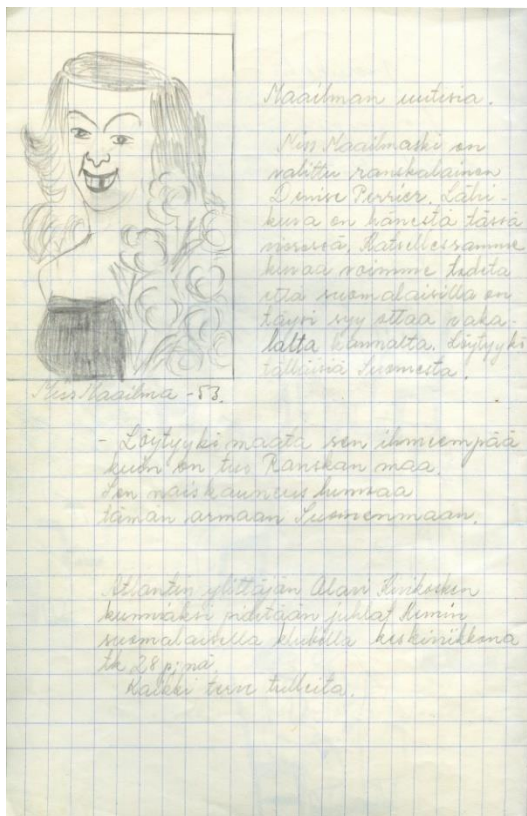 Maailman uutisia.
Miss Maailmaski on
valittu ranskalainen
Denise Perrier. Lähi-
kuva on hänestä tässä
vieressä. Katsellessamme
kuvaa voimme todeta
että suomalaisilla on
täysi syy ottaa vaka-
lalta kannalta. Löytyykö
tälläisiä Suomesta.
Miss Maailma -53.
- Löytyykö maata sen ihmeempää
kuin on tuo Ranskan maa
Sen naiskauneus
tämän armaan Suomenmaan.
Atlantin ylittäjän Alavi Kivikosken
kunniaksi pidetään juhlat Kemin
suomalaisella klubilla keskiviikkona
tk 28 p:nä
Kaikki terve tulleita.